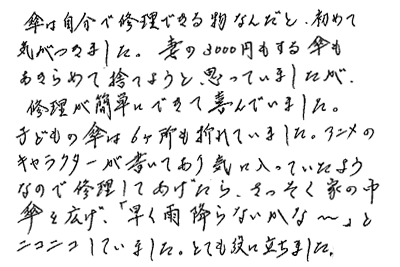 傘は自分で修理できる物なんだと、初めて
気がつきました。妻の3000円もする傘も
あきらめて捨てようと思っていましたが、
修理が簡単にできて喜んでいました。
子どもの傘は6ヶ所も折れていました。アニメの
キャラクターが書いてあり気に入っていたよう
なので修理してあげたら、さっそく家の中
傘を広げ、「早く雨降らないかな〜」と
ニコニコしていました。とても役に立ちました。